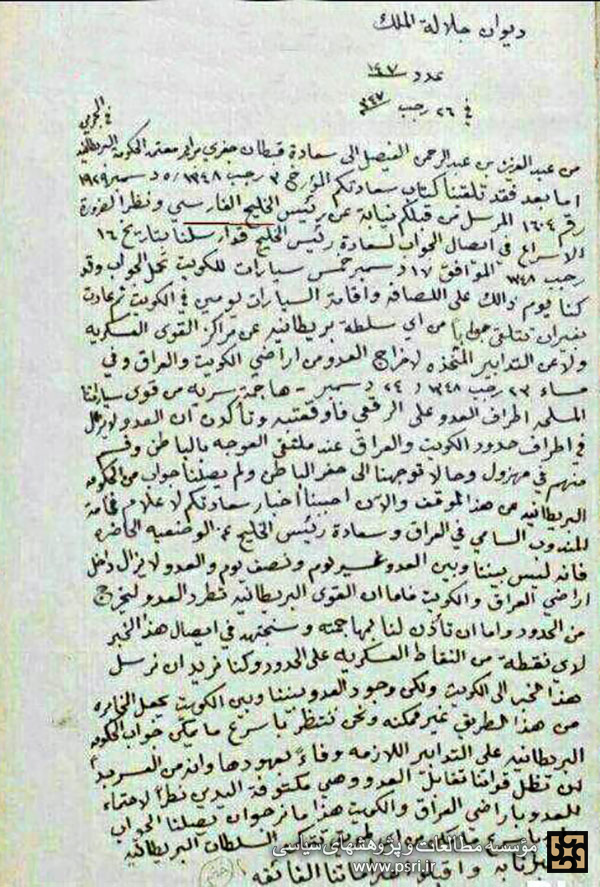 ديوان جلالة الملك
عدد ١٤٠٧
في ٢٦ رجب ١٣٤٧
من عبد العزيز بن عبد الرحمن الفيصل الى سعادة قبطان جفري معتمد الحكومة البريطانيه في
اما بعد فقد تلقينا كتاب سعادتكم المؤرخ ٣ رجب ١٣٤٨ / ٥ دسمبر ١٩٢٩
رقم ١٦٠٤ المرسل من قبلكم نيابة عن رئيس الخليج الفارسي ونظرا لضرورة
الاسراع في ايصال الجواب لسعادة رئيس الخليج قد ارسلنا بتاريخ ١٦
رجب ١٣٤٨ الموافق ١٧ دسمبر خمس سيارات للكويت تحمل الجواب وقد
كنا يوم ذالك على اللصافه واقامة السيارات يومين في الكويت ثم عادت
بغير ان تتلقى جوابا من اي سلطة بريطانيه عن مراكز القوى العسكريه
ولا عن التدابير المتخذه لاخراج العدو من اراضي الكويت والعراق وفي
مساء ٢٣ رجب ١٣٤٨ / ٢٤ دسمبر - هاجمة سريه من قوى سياراتنا
المسلحه اطراف العدو على الرقعي فأوقعتبه وتأكدن ان العدو لا يزال
في اطراف حدود الكويت والعراق عند ملتقى العوجه بالباطن وقسم
منهم في مهزول وحالا توجهنا الى حفر الباطن ولم يصلنا جواب من الحكومه
البريطانيه عن هذا الموقف والان احببنا أخبار سعادتكم لاعلام فخامة
المندوب السامي في العراق وسعادة رئيس الخليج عن الوضعيه الحاضره
فانه ليس بيننا وبين العدو غير يوم ونصف يوم والعدو لا يزال داخل
اراضي العراق والكويت فاما ان القوى البريطانيه تطرد العدو ليخرج
من الحدود واما ان تأذن لنا بمهاجمته وسنجتهد في ايصال هذا الخبر
لادي نقطة من النقاط العسكريه على الحدود وكنا نريد ان نرسل
هذا الخبر الى الكويت ولكن وجود العدو بيننا وبين الكويت يجعل المخابره
من هذا الطريق غير ممكنه ونحن ننتظر باسرع ما يمكن جواب الحكومة
البريطانيه على التدابير اللازمه وفاءً بعهودها وانه من
لن تظل قواتنا تقابل العدو وهي مكتوفة اليدي نظراً لاحتماء
العدو باراضي العراق والكويت هذا ما نرجوا ان يصلنا الجواب
باسرع ما السلطات البريطانيه
واقبلوا تحياتنا الفائقه
مؤسسه مطالعات و پژوهشهای سیاسی
www.psri.ir